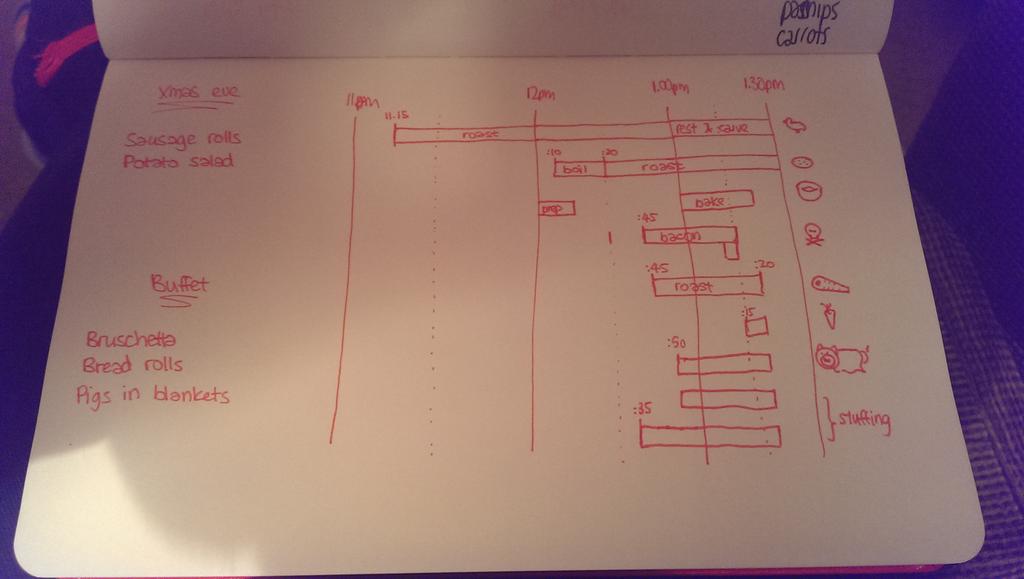 parsnips
carrots
Xmas eve
Sausage rolls
Potato salad
Buffet
Bruschetta
Bread rolls
Pigs in blankets
11pm 12pm 1.00pm 1.30pm
11.15
roast rest & carve
:10 :20
boil roast
prep bake
:45
bacon
:45 :20
roast
:15
:50
:35
stuffing